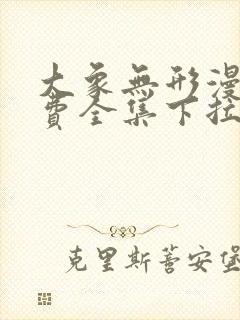 大象無形漫
費全集下拉
克里斯蒂安堡